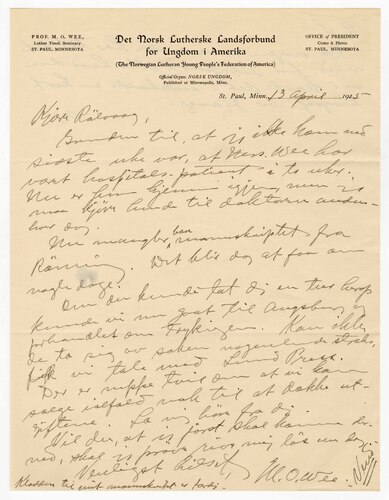 PROF. M. O. WEE,
Luther Theol. Seminary
ST. PAUL, MINNESOTA
Det Norsk Lutherske Landsforbund
for Ungdom i Amerika
(The Norwegian Lutheran Young People's Federation of America)
Official Organ: NORSK UNGDOM,
Published at Minneapolis, Minn.
OFFICE of PRESIDENT
Como & Pierce
ST. PAUL, MINNESOTA
St. Paul, Minn. 13 april 1925
Kjære Rölvaag,
Grunden til, at jeg ikke kom ned
sidste uke var, at Mrs. Wee har
vært hospitals-patient i to uker.
Nu er hun hjemme igjen, men jeg
maa kjöre hende til doktoren
dag.
Nu mangler bare manuskriptet fra
Rönning. Det blir dog at faa om
nogle dage.
Om du kunde tat dig en tur herop
kunde vi um gaat til Augsburg og
forhandlet om Trykningen. Kan ikke
de ta sig av saken nogenlunde straks,
fik vi tale med Lund Press.
Der er neppe tvil om at vi kan
sælge ialfald nok til at dække ut-
gifterne. La mig höre fra dig.
Vil du, at jeg först skal komme
ned, skal jeg pröve rive mig lös en dag.
Venligst hilset
M. O. Wee.
Kladden til mit manuskript er færdig.